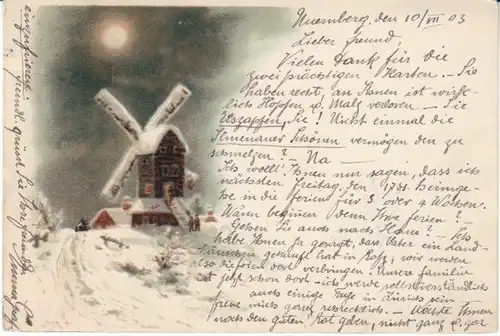 Nuernberg, den 10/VII 03
Lieber Freund,
Vielen Dank für die
zwei prächtigen Karten. - Sie
haben recht, an Ihnen ist wirk-
lich Hopfen u. Malz verloren - Sie
Eiszapfen, Sie! Nicht einmal die
Ilmenauer Schönen vermögen den zu
schmelzen? - Na -
Ich wollt' Ihnen nur sagen, dass ich
nächsten Freitag, den
in die Ferien für 3 oder 4 Wochen.
Wann beginnen denn Ihre Ferien? -
Gehen Sie auch nach Haus? - Ich
habe Ihnen ja gesagt, dass Vater ein Land-
häuschen gekauft hat in wir werden
also die Ferien dort verbringen. Unsere Familie ist
jetzt schon dort - ich werde selbstverständlich
auch einige Tage in sein
freue mich ganz schrecklich. - Wollte Ihnen
noch den guten Rat geben, nicht ganz u. gar
einzufrieren.
freundl. grüsst Sie Ihre